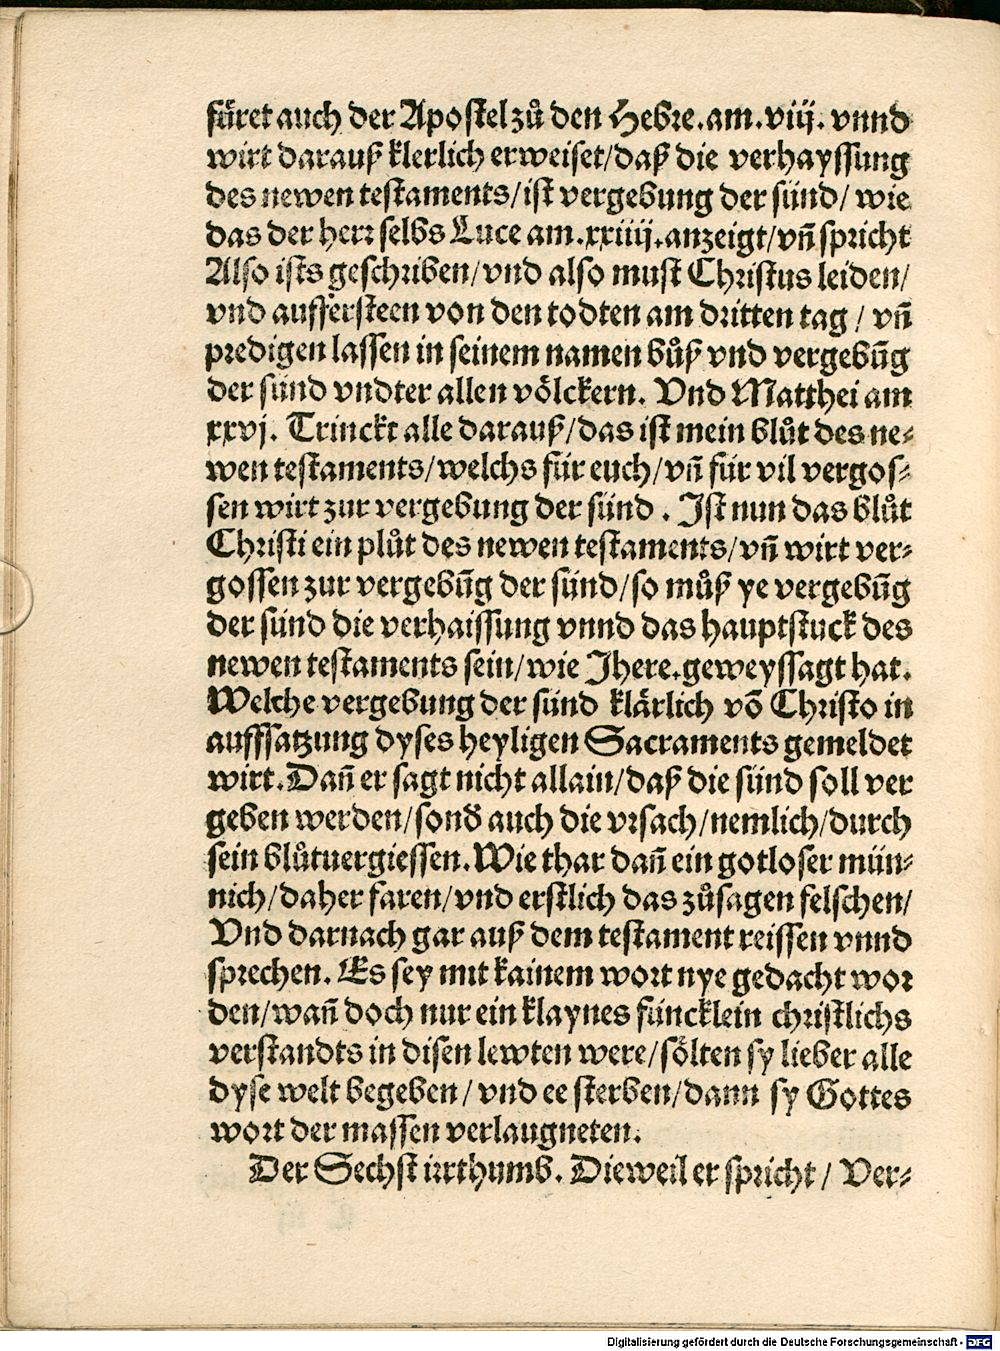 füret auch der Apostel zů den Hebre.am.viij. vnnd
wirt darauß klerlich erweiset/daß die verhayssung
des newen testaments/ist vergebung der sünd/ wie
das der herr selbs Luce am.xxiiij.anzeigt/vñ spricht
Also ists geschriben/vnd also must Christus leiden/
vnd aufferersteen von den todten am dritten tag / vñ
predigen lassen in seinem namen bůß vnd vergebūg
der sünd vndter allen völckern. Vnd Matthei am
xxvj. Trinckt alle darauß/das ist mein blůt des ne⸗
wen testaments/welchs für euch/vñ für vil vergos⸗
sen wirt zur vergebung der sünd . Ist nun das blůt
Christi ein plůt des newen testaments/vñ wirt ver⸗
gossen zur vergebūg der sünd/so můß ye vergebūg
der sünd die verhaissung vnnd das hauptstuck des
newen testaments sein/wie Jhere.geweyssagt hat.
Welche vergebung der sünd klärlich vō Christo in
aufffsatzung dyses heyligen Sacraments gemeldet
wirt.Dañ er sagt nicht allain/daß die sünd soll ver
geben werden/sonđ auch die vrsach/nemlich/durch
sein blůtuergiessen.Wie thar dañ ein gotloser mün⸗
nich/daher faren/vnd erstlich das zůsagen felschen/
Vnd darnach gar auß dem testament reissen vnnd
sprechen. Es sey mit kainem wort nye gedacht wor
den/wañ doch nur ein klaynes füncklein christlichs
verstandts in disen lewten were/sölten sy lieber alle
dyse welt begeben/ vnd ee sterben/dann sy Gottes
wort der massen verlaugneten.
Der Sechst irrthumb. Dieweil er spricht / Ver⸗
Digitalisierung gefördert durch die Deutsche Forschungsgemeinschaft - DFG